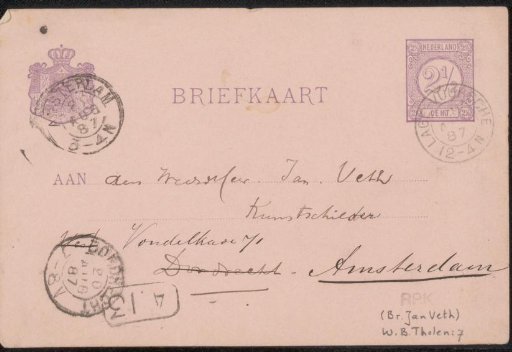 NEDERLAND
2½
CENT
BRIEFKAART
AMSTERDAM
87
2-4N
LAGE VUURSCHE
87
12-4N
AAN den Weledel Heer Jan Veth
Kunstschilder
Vondelkade 71
Dordrecht - Amsterdam
DORDRECHT
20
AUG
87
A 1
RPK
(Br. Jan Veth)
W.B. Tholen: 7